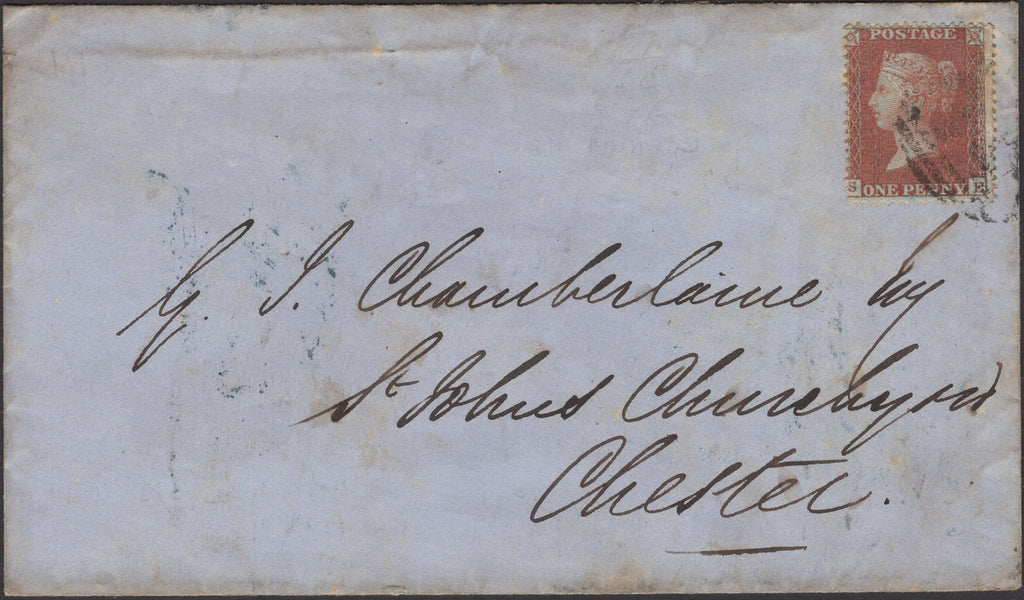 POSTAGE
S ONE PENNY E
G. J. Chamberlaine Esq
St Johns Churchyard
Chester.